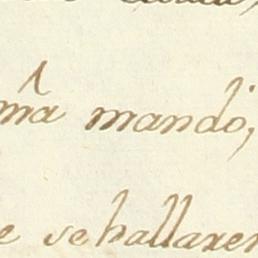 ma mandó,
e se hallaren